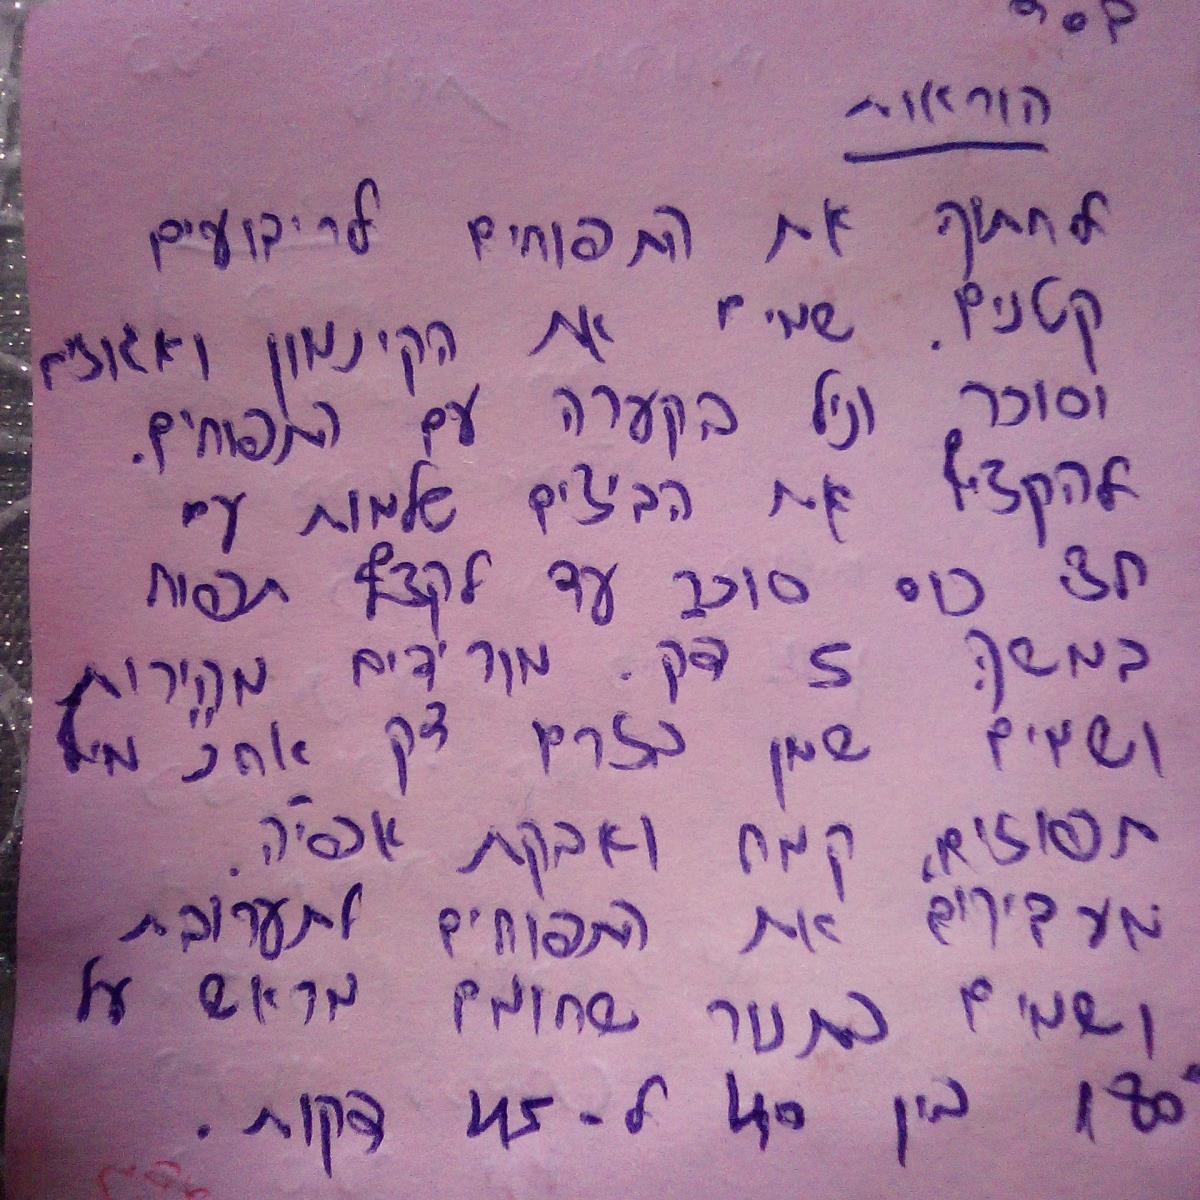 בס"ד
הוראות
לחתוך את התפוחים לריבועים
קטנים. שמים את הקינמון ואגוזים
וסוכר וניל בקערה עם התפוחים.
להקציף את הביצים שלמות עם
חצי כוס סוכר עד לקצף תפוח
במשך 5 דק. מורידים מהירות
ושמים שמן בזרם דק אח"כ מיץ
תפוזים, קמח ואבקת אפיה.
מעבירים את התפוחים לתערובת
ושמים בתנור שחומם מראש על
180° בין 40 ל-45 דקות.